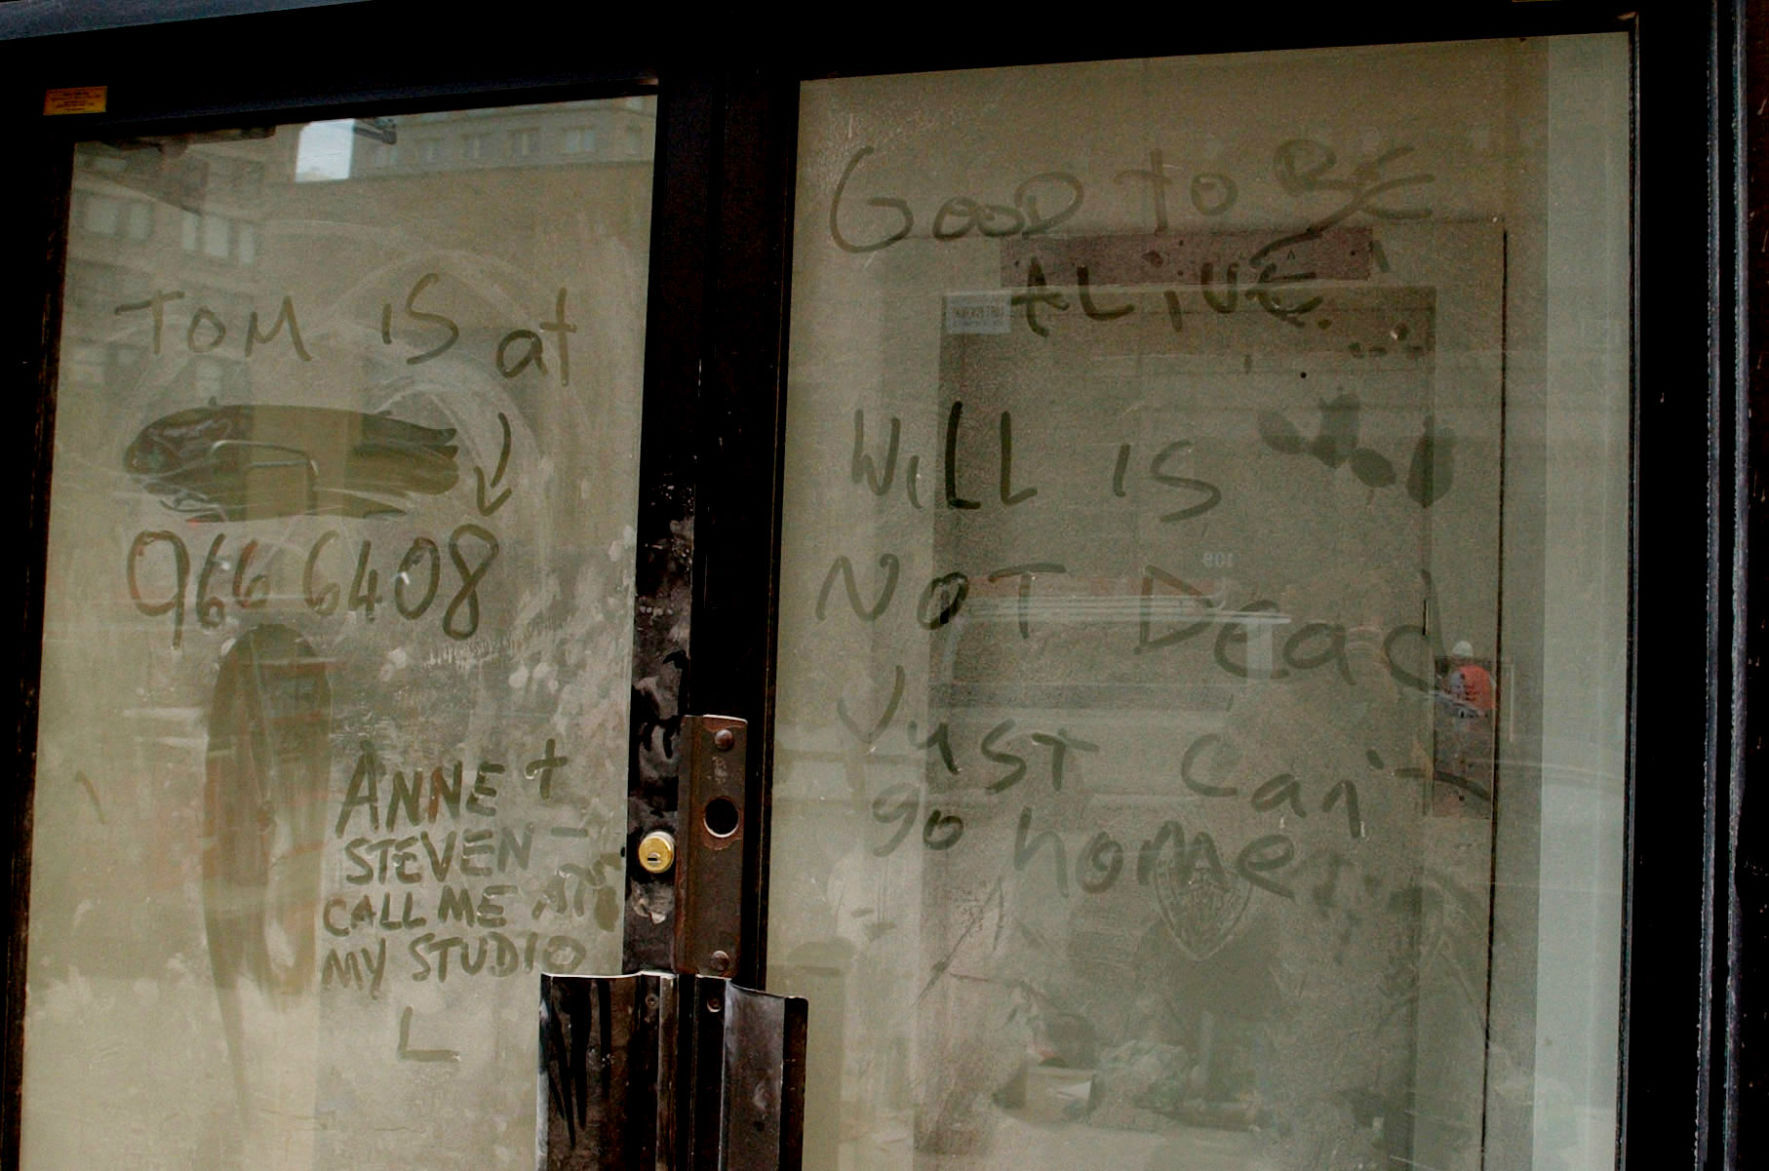 TOM IS at
966 6408
ANNE +
STEVEN -
CALL ME AT
MY STUDIO
L
GOOD to BE
ALiVE.
WiLL IS
NOT Dead
JuST Can't
go home